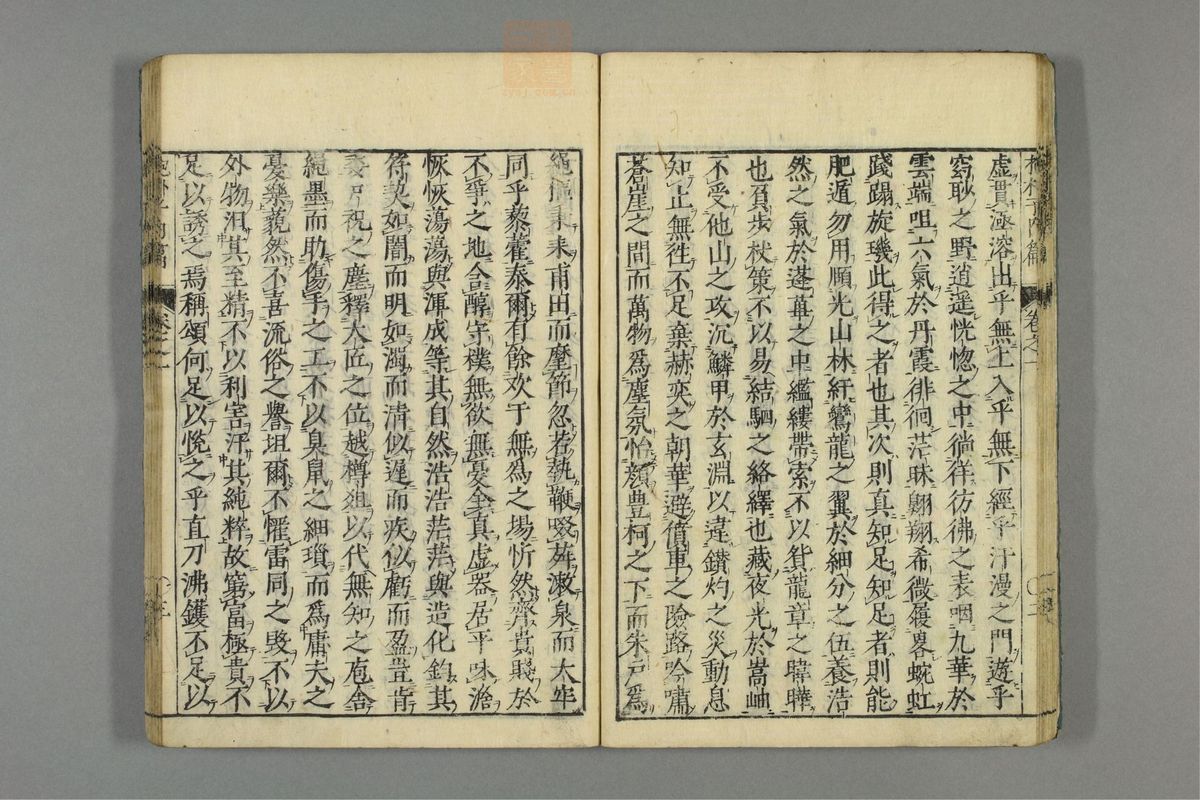 虛貫極溶出乎無上入乎無下經乎汗漫之門遊乎
窈眇之野逍遥恍惚之中徜徉彷彿之表咽九華於
雲端咀六氣於丹霞徘徊茫昧翺翔希微履畧蜿虹
踐跚旋璣此得之者也其次則真知足知足者則能
肥遁勿用頤光山林紆鸞龍之翼於細分之伍養浩
然之氣於蓬蓽之中繿縷帶索不以貿龍章之暐曄
也負歩杖策不以易結駟之絡繹也藏夜光於嵩岫
不受他山之攻沉鱗甲於玄淵以違鑚灼之災動息
知止無徃不足棄赫奕之朝華避僨車之險路吟嘯
蒼崖之間而萬物爲塵氛怡顔豊柯之下而朱戸爲
繩樞秉耒甫田而麾節忽若執鞭啜荈漱泉而太牢
同乎藜藿泰爾有餘欢于無爲之塲忻然齊貴賤於
不爭之地含醇守樸無欲無憂全真虛器居平味澹
恢恢蕩蕩與渾成等其自然浩浩茫茫與造化鈞其
符契如闇而明如濁而清似遲而疾似虧而盈豈肯
委尸祝之塵釋大匠之位越樽爼以代無知之庖舍
繩墨而助傷手之工不以臭䑕之細瑣而爲庸夫之
憂樂藐然不喜流俗之譽坦爾不懼雷同之毀不以
外物汨其至精不以利害汙其純粹故窮富極貴不
足以誘之焉稱頌何足以悅之乎直刀沸鑊不足以
卷之一